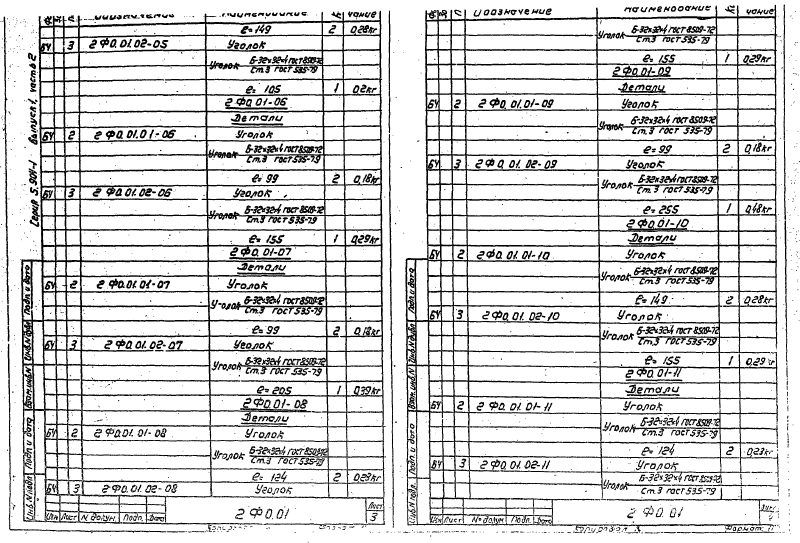 Обозначение Наименование Кол. чание
ℓ=149 2 0,28кг
БЧ 3 2Ф0.01.02-05 Уголок
Уголок Б-32×32×4 ГОСТ 8509-72
Ст.3 ГОСТ 535-79
ℓ=105 1 0,2кг
2Ф0.01-06
Детали
БЧ 2 2Ф0.01.01-06 Уголок
Уголок Б-32×32×4 ГОСТ 8509-72
Ст.3 ГОСТ 535-79
ℓ=99 2 0,18кг
БЧ 3 2Ф0.01.02-06 Уголок
Уголок Б-32×32×4 ГОСТ 8509-72
Ст.3 ГОСТ 535-79
ℓ=155 1 0,29кг
2Ф0.01-07
Детали
БЧ 2 2Ф0.01.01-07 Уголок
Уголок Б-32×32×4 ГОСТ 8509-72
Ст.3 ГОСТ 535-79
ℓ=99 2 0,18кг
БЧ 3 2Ф0.01.02-07 Уголок
Уголок Б-32×32×4 ГОСТ 8509-72
Ст.3 ГОСТ 535-79
ℓ=205 1 0,39кг
2Ф0.01-08
Детали
БЧ 2 2Ф0.01.01-08 Уголок
Уголок Б-32×32×4 ГОСТ 8509-72
Ст.3 ГОСТ 535-79
ℓ=124 2 0,23кг
БЧ 3 2Ф0.01.02-08 Уголок
Изм Лист № докум. Подп. Дата
2Ф0.01
Лист
3
Серия 5.904-1 Выпуск 1, часть 2
Инв.№подл. Подп. и дата Взам.инв.№ Инв.№дубл. Подп. и дата
Обозначение Наименование Кол. чание
Уголок Б-32×32×4 ГОСТ 8509-72
Ст.3 ГОСТ 535-79
ℓ=155 1 0,29кг
2Ф0.01-09
Детали
БЧ 2 2Ф0.01.01-09 Уголок
Уголок Б-32×32×4 ГОСТ 8509-72
Ст.3 ГОСТ 535-79
ℓ=99 2 0,18кг
БЧ 3 2Ф0.01.02-09 Уголок
Уголок Б-32×32×4 ГОСТ 8509-72
Ст.3 ГОСТ 535-79
ℓ=255 1 0,48кг
2Ф0.01-10
Детали
БЧ 2 2Ф0.01.01-10 Уголок
Уголок Б-32×32×4 ГОСТ 8509-72
Ст.3 ГОСТ 535-79
ℓ=149 2 0,28кг
БЧ 3 2Ф0.01.02-10 Уголок
Уголок Б-32×32×4 ГОСТ 8509-72
Ст.3 ГОСТ 535-79
ℓ=155 1 0,29кг
2Ф0.01-11
Детали
БЧ 2 2Ф0.01.01-11 Уголок
Уголок Б-32×32×4 ГОСТ 8509-72
Ст.3 ГОСТ 535-79
ℓ=124 2 0,23кг
БЧ 3 2Ф0.01.02-11 Уголок
Уголок Б-32×32×4 ГОСТ 8509-72
Ст.3 ГОСТ 535-79
Изм Лист № докум. Подп. Дата
2Ф0.01
Формат 11
Инв.№подл. Подп. и дата Взам.инв.№ Инв.№дубл. Подп. и дата